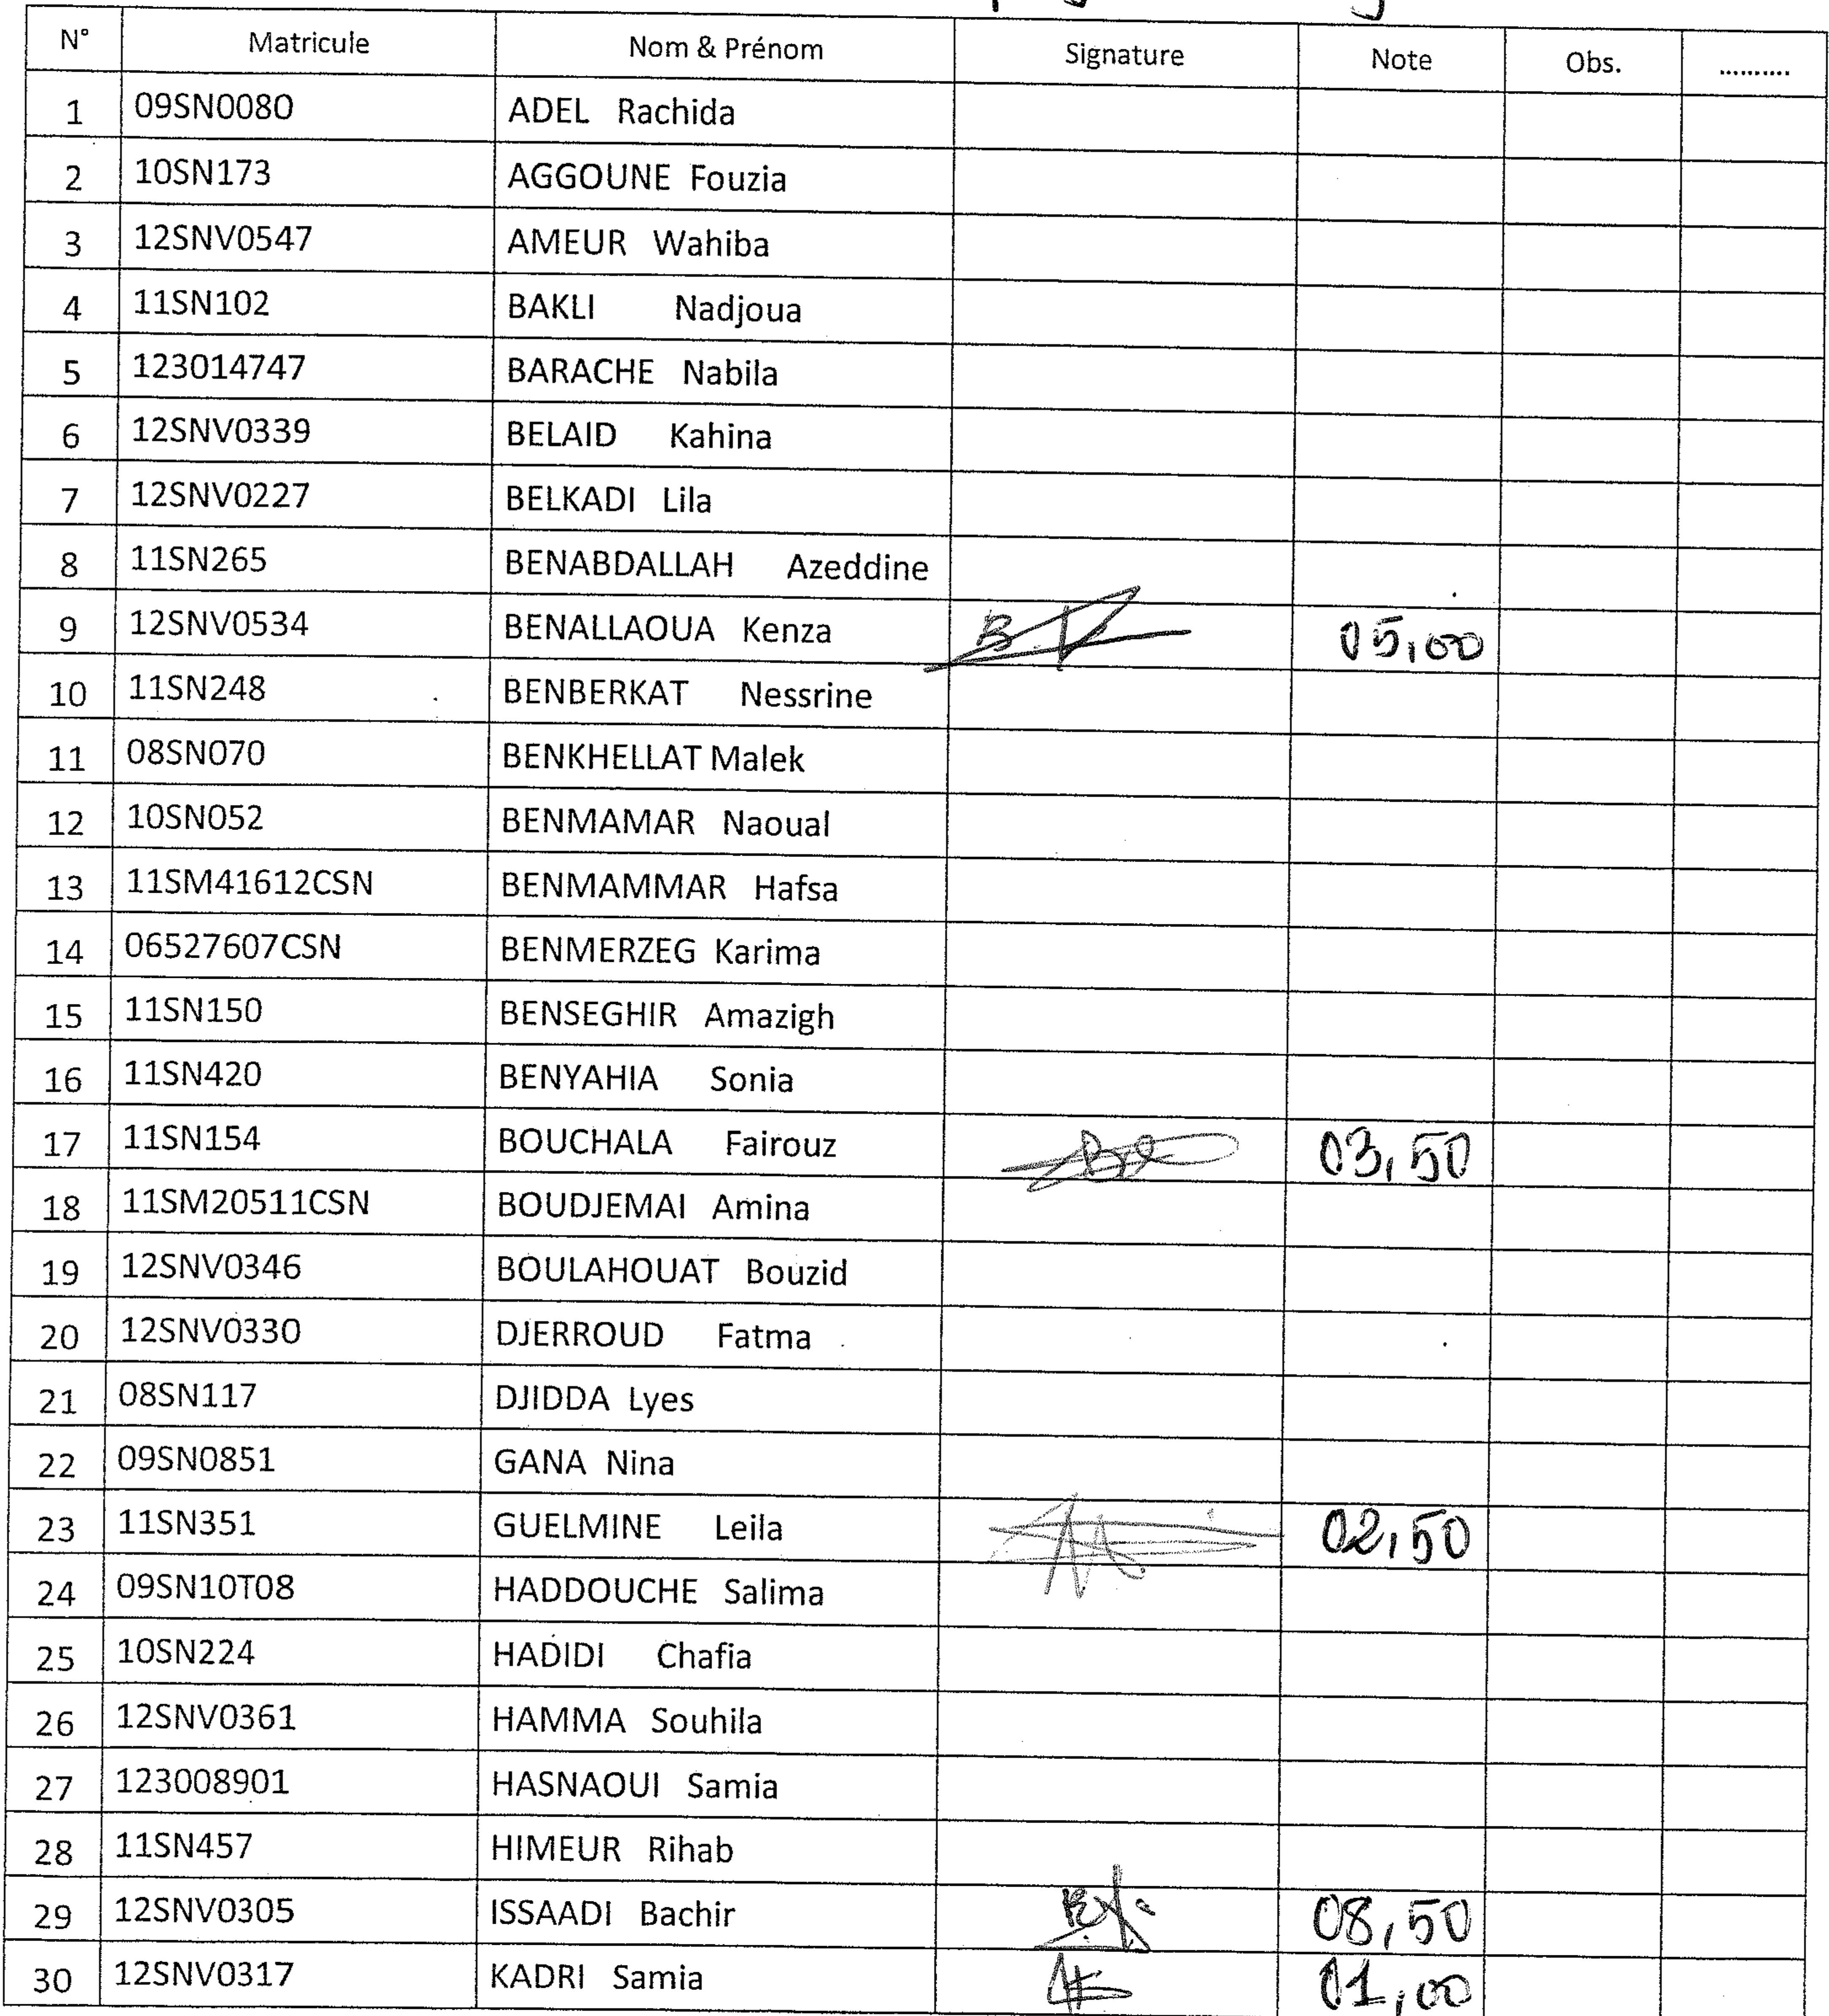 N° Matricule Nom & Prénom Signature Note Obs. ..........
1 09SN0080 ADEL Rachida
2 10SN173 AGGOUNE Fouzia
3 12SNV0547 AMEUR Wahiba
4 11SN102 BAKLI Nadjoua
5 123014747 BARACHE Nabila
6 12SNV0339 BELAID Kahina
7 12SNV0227 BELKADI Lila
8 11SN265 BENABDALLAH Azeddine
9 12SNV0534 BENALLAOUA Kenza 05,00
10 11SN248 BENBERKAT Nessrine
11 08SN070 BENKHELLAT Malek
12 10SN052 BENMAMAR Naoual
13 11SM41612CSN BENMAMMAR Hafsa
14 06527607CSN BENMERZEG Karima
15 11SN150 BENSEGHIR Amazigh
16 11SN420 BENYAHIA Sonia
17 11SN154 BOUCHALA Fairouz 03,50
18 11SM20511CSN BOUDJEMAI Amina
19 12SNV0346 BOULAHOUAT Bouzid
20 12SNV0330 DJERROUD Fatma
21 08SN117 DJIDDA Lyes
22 09SN0851 GANA Nina
23 11SN351 GUELMINE Leila 02,50
24 09SN10T08 HADDOUCHE Salima
25 10SN224 HADIDI Chafia
26 12SNV0361 HAMMA Souhila
27 123008901 HASNAOUI Samia
28 11SN457 HIMEUR Rihab
29 12SNV0305 ISSAADI Bachir 08,50
30 12SNV0317 KADRI Samia 01,00